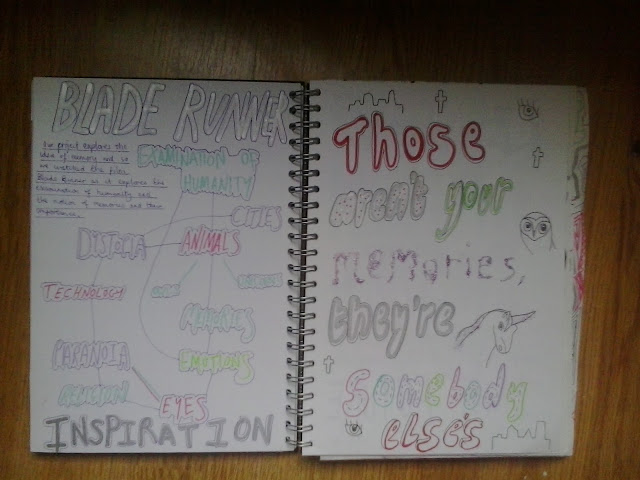 BLADE RUNNER
Our project explores the
idea of memory and so
we watched the film
Blade Runner as it explores the
examination of humanity and
the notion of memories and their
importance.
EXAMINATION OF
HUMANITY
CITIES
DISTOPIA
ANIMALS
TECHNOLOGY
MEMORIES
PARANOIA
EMOTIONS
RELIGION
EYES
INSPIRATION
Those
aren't your
memories,
they're
somebody
else's